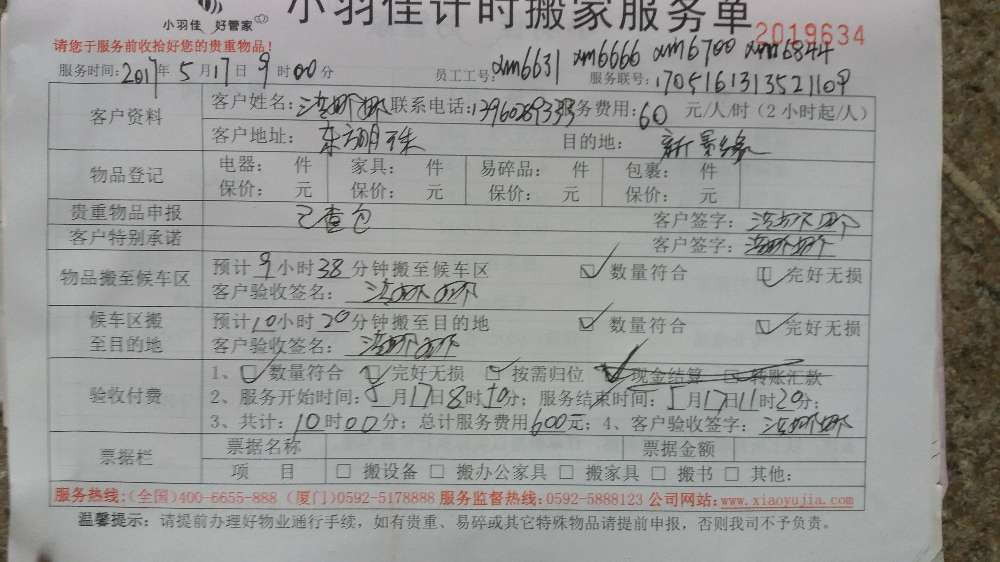 小羽佳计时搬家服务单
小羽佳 好管家
2019634
请您于服务前收拾好您的贵重物品!
服务时间: 2017年 5月17日9时00分 员工工号: xm6631 xm6666 xm6700 xm6844
服务联号: 1705161313521109
客户资料 客户姓名: 联系电话: 服务费用: 60 元/人/时 (2小时起/人)
客户地址: 东方明珠 目的地: 新景缘
物品登记 电器: 件 家具: 件 易碎品: 件 包裹: 件
保价: 元 保价: 元 保价: 元 保价: 元
贵重物品申报 已查包 客户签字:
客户特别承诺 客户签字:
物品搬至候车区 预计9小时38分钟搬至候车区 ☑数量符合 ☑完好无损
客户验收签名:
候车区搬至目的地 预计10小时20分钟搬至目的地 ☑数量符合 ☑完好无损
客户验收签名:
验收付费 1、☑数量符合 ☑完好无损 ☑按需归位 ☑现金结算 ☑转账汇款
2、服务开始时间: 5月17日8时50分; 服务结束时间: 5月17日11时20分;
3、共计: 10时00分; 总计服务费用600元; 4、客户验收签字:
票据栏 票据名称 票据金额
项 目 □搬设备 □搬办公家具 □搬家具 □搬书 □其他:
服务热线:(全国)400-6655-888 (厦门)0592-5178888 服务监督热线:0592-5888123 公司网站:www.xiaoyujia.com
温馨提示: 请提前办理好物业通行手续, 如有贵重、易碎或其它特殊物品请提前申报, 否则我司不予负责。